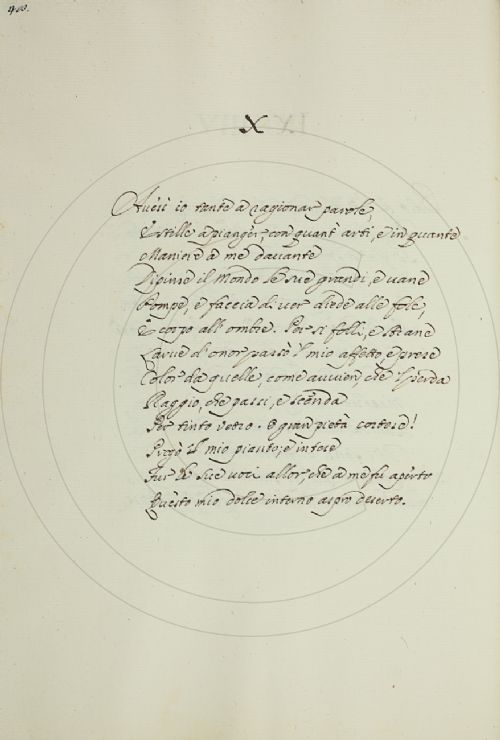 X
Avess' io tante a ragionar parole,
E stille a pianger, con quant' arti, e in quante
Maniere a me davante
Dipinse il Mondo le sue grandi, e vane
Pompe, e faccia di ver diede alle fole,
E corpo all' ombre. Per sì folli, e strane
Larve d'onor passò 'l mio affetto, e prese
Color da quelle, come avvien, che 'l prenda
Raggio, che passi, e scenda
Per tinto vetro. O gran pietà cortese!
Pregò il mio pianto; e intese
Fur le sue voci allor, che a me fu aperto
Questo mio dolce interno aspro deserto.